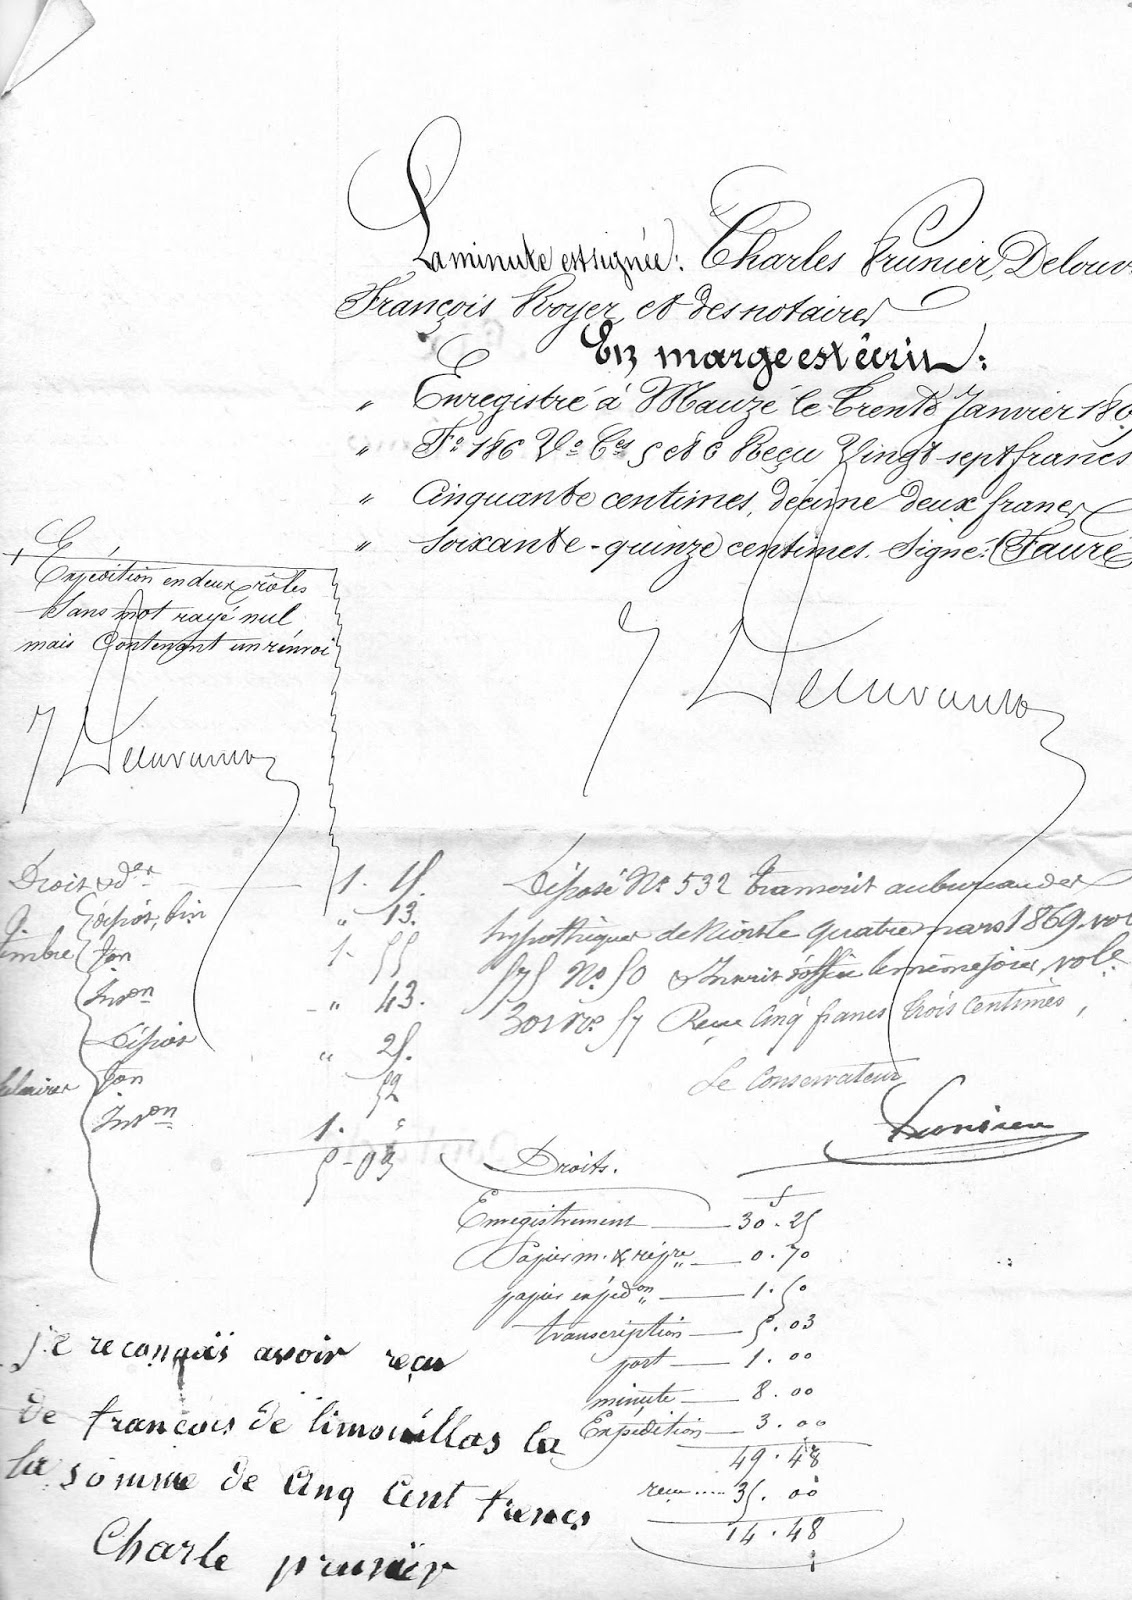 La minute est signée: Charles Prunier, Delouv
François Royer, et des notaires
En marge est écrit:
" Enregistré à Mauzé le trente Janvier 186
" Fo 186 Vo Ces 5 et 6 Reçu Vingt sept francs
" Cinquante centimes, décime deux francs
" soixante-quinze centimes. Signé: Faure
Expédition en deux rôles
Sans mot rayé nul
mais Contenant un renvoi
Droit &
1. 15.
timbre
dépôt,
" 13.
Ton
1. 55
Inson
" 43.
Dépôt
" 25.
Salaires
Ton
52
Inson
1. "
5-03
Déposé No 532 Transcrit au bureau des
hypothèques de Niort le quatre mars 1869. vol
575 No 50 & Inscrit d'office le même jour, vol.
301 No 57 Reçu Cinq francs trois Centimes,
Le Conservateur
Droits.
f
Enregistrement — 30.25
Papier m. & répre — 0.70
papier expédon — 1.50
transcription — 5.03
port — 1.00
minute — 8.00
Expédition — 3.00
49.48
reçu ..... 35.00
14.48
je reconçais avoir reçu
de francois de limouillas la
la somme de Cinq Cent frencs
Charle prunier